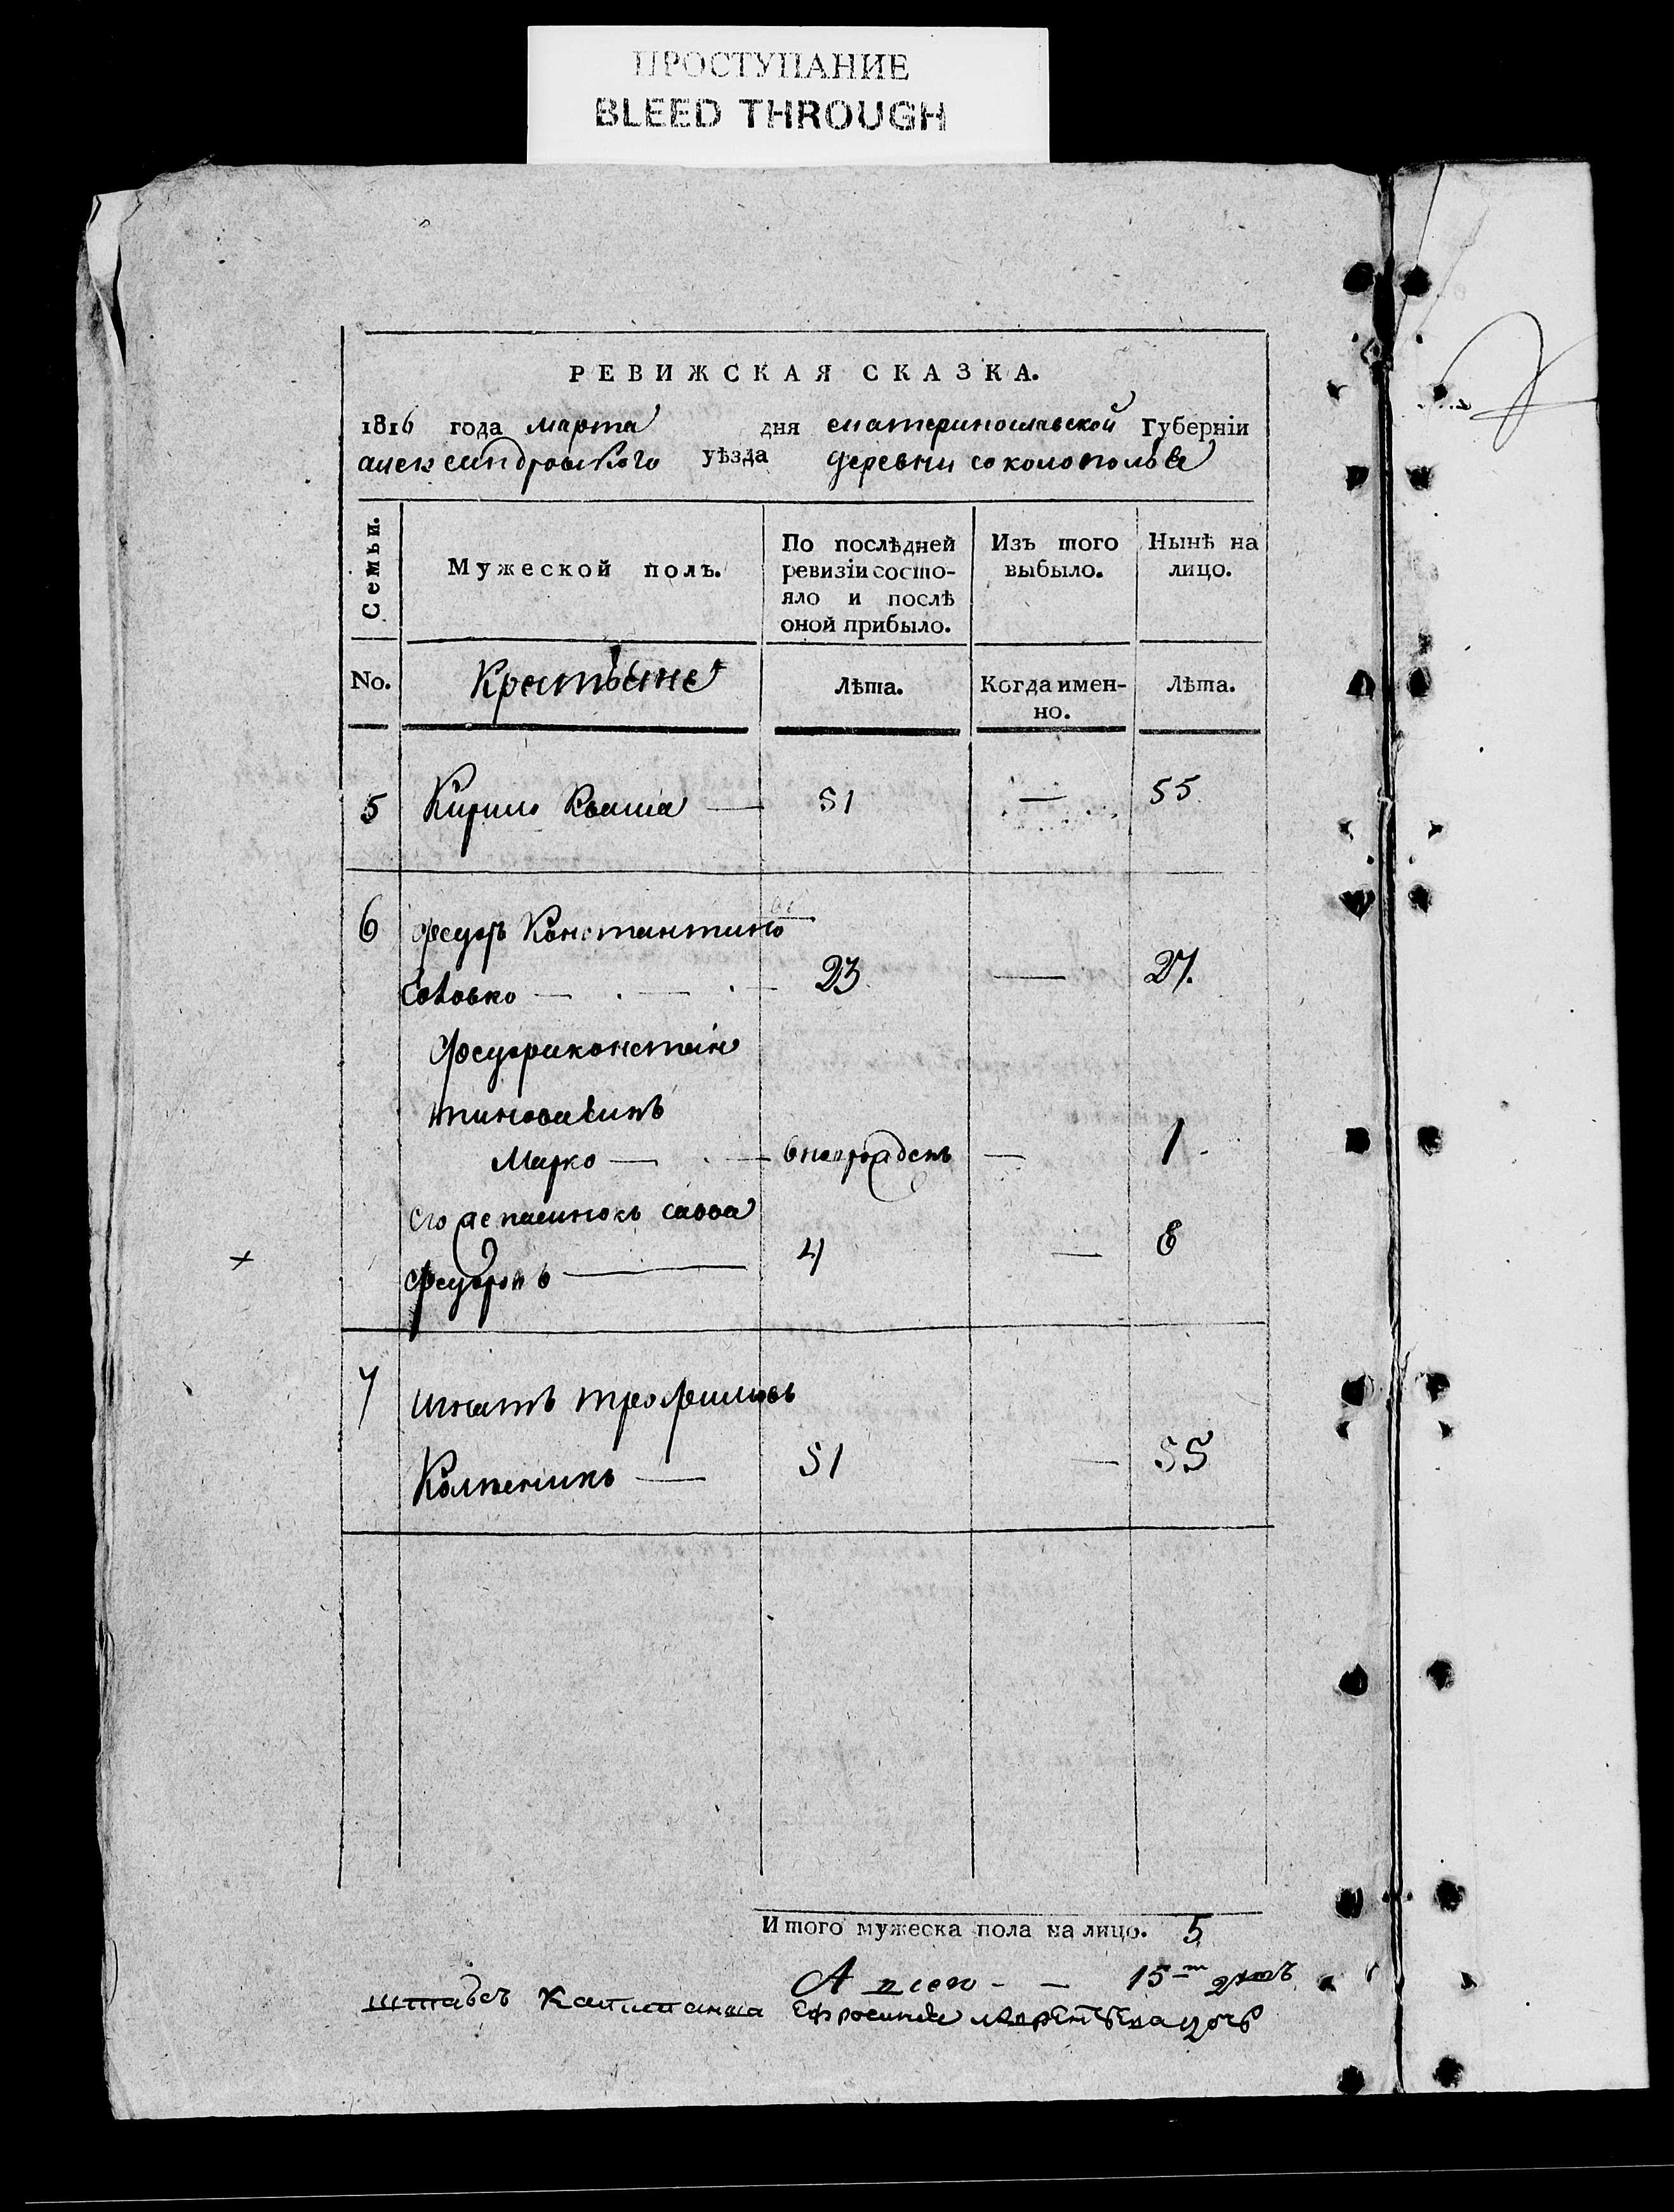 ПРОСТУПАНИЕ
BLEED THROUGH
РЕВИЖСКАЯ СКАЗКА.
1816 года марта дня екатеринославской Губерніи
александровского уѣзда деревни соколополья
Семьи. Мужеской полъ. По послѣдней ревизіи состо-яло и послѣ оной прибыло. Изъ того выбыло. Нынѣ на лицо.
No. Крестьяне Лѣта. Когда имен-но. Лѣта.
5 Кирило Кваша — 51 — 55
6 Федоръ Константино
23 — 27.
Федора констан
тинова синъ
Марко — внов рожденъ — 1
Его же пасинокъ савва
Федоровъ — 4 — 8
7 Игнатъ трофимовъ
51 — 55
Итого мужеска пола на лицо. 5
А всего — 15
штабсъ Капитанша Ефросиния дочь